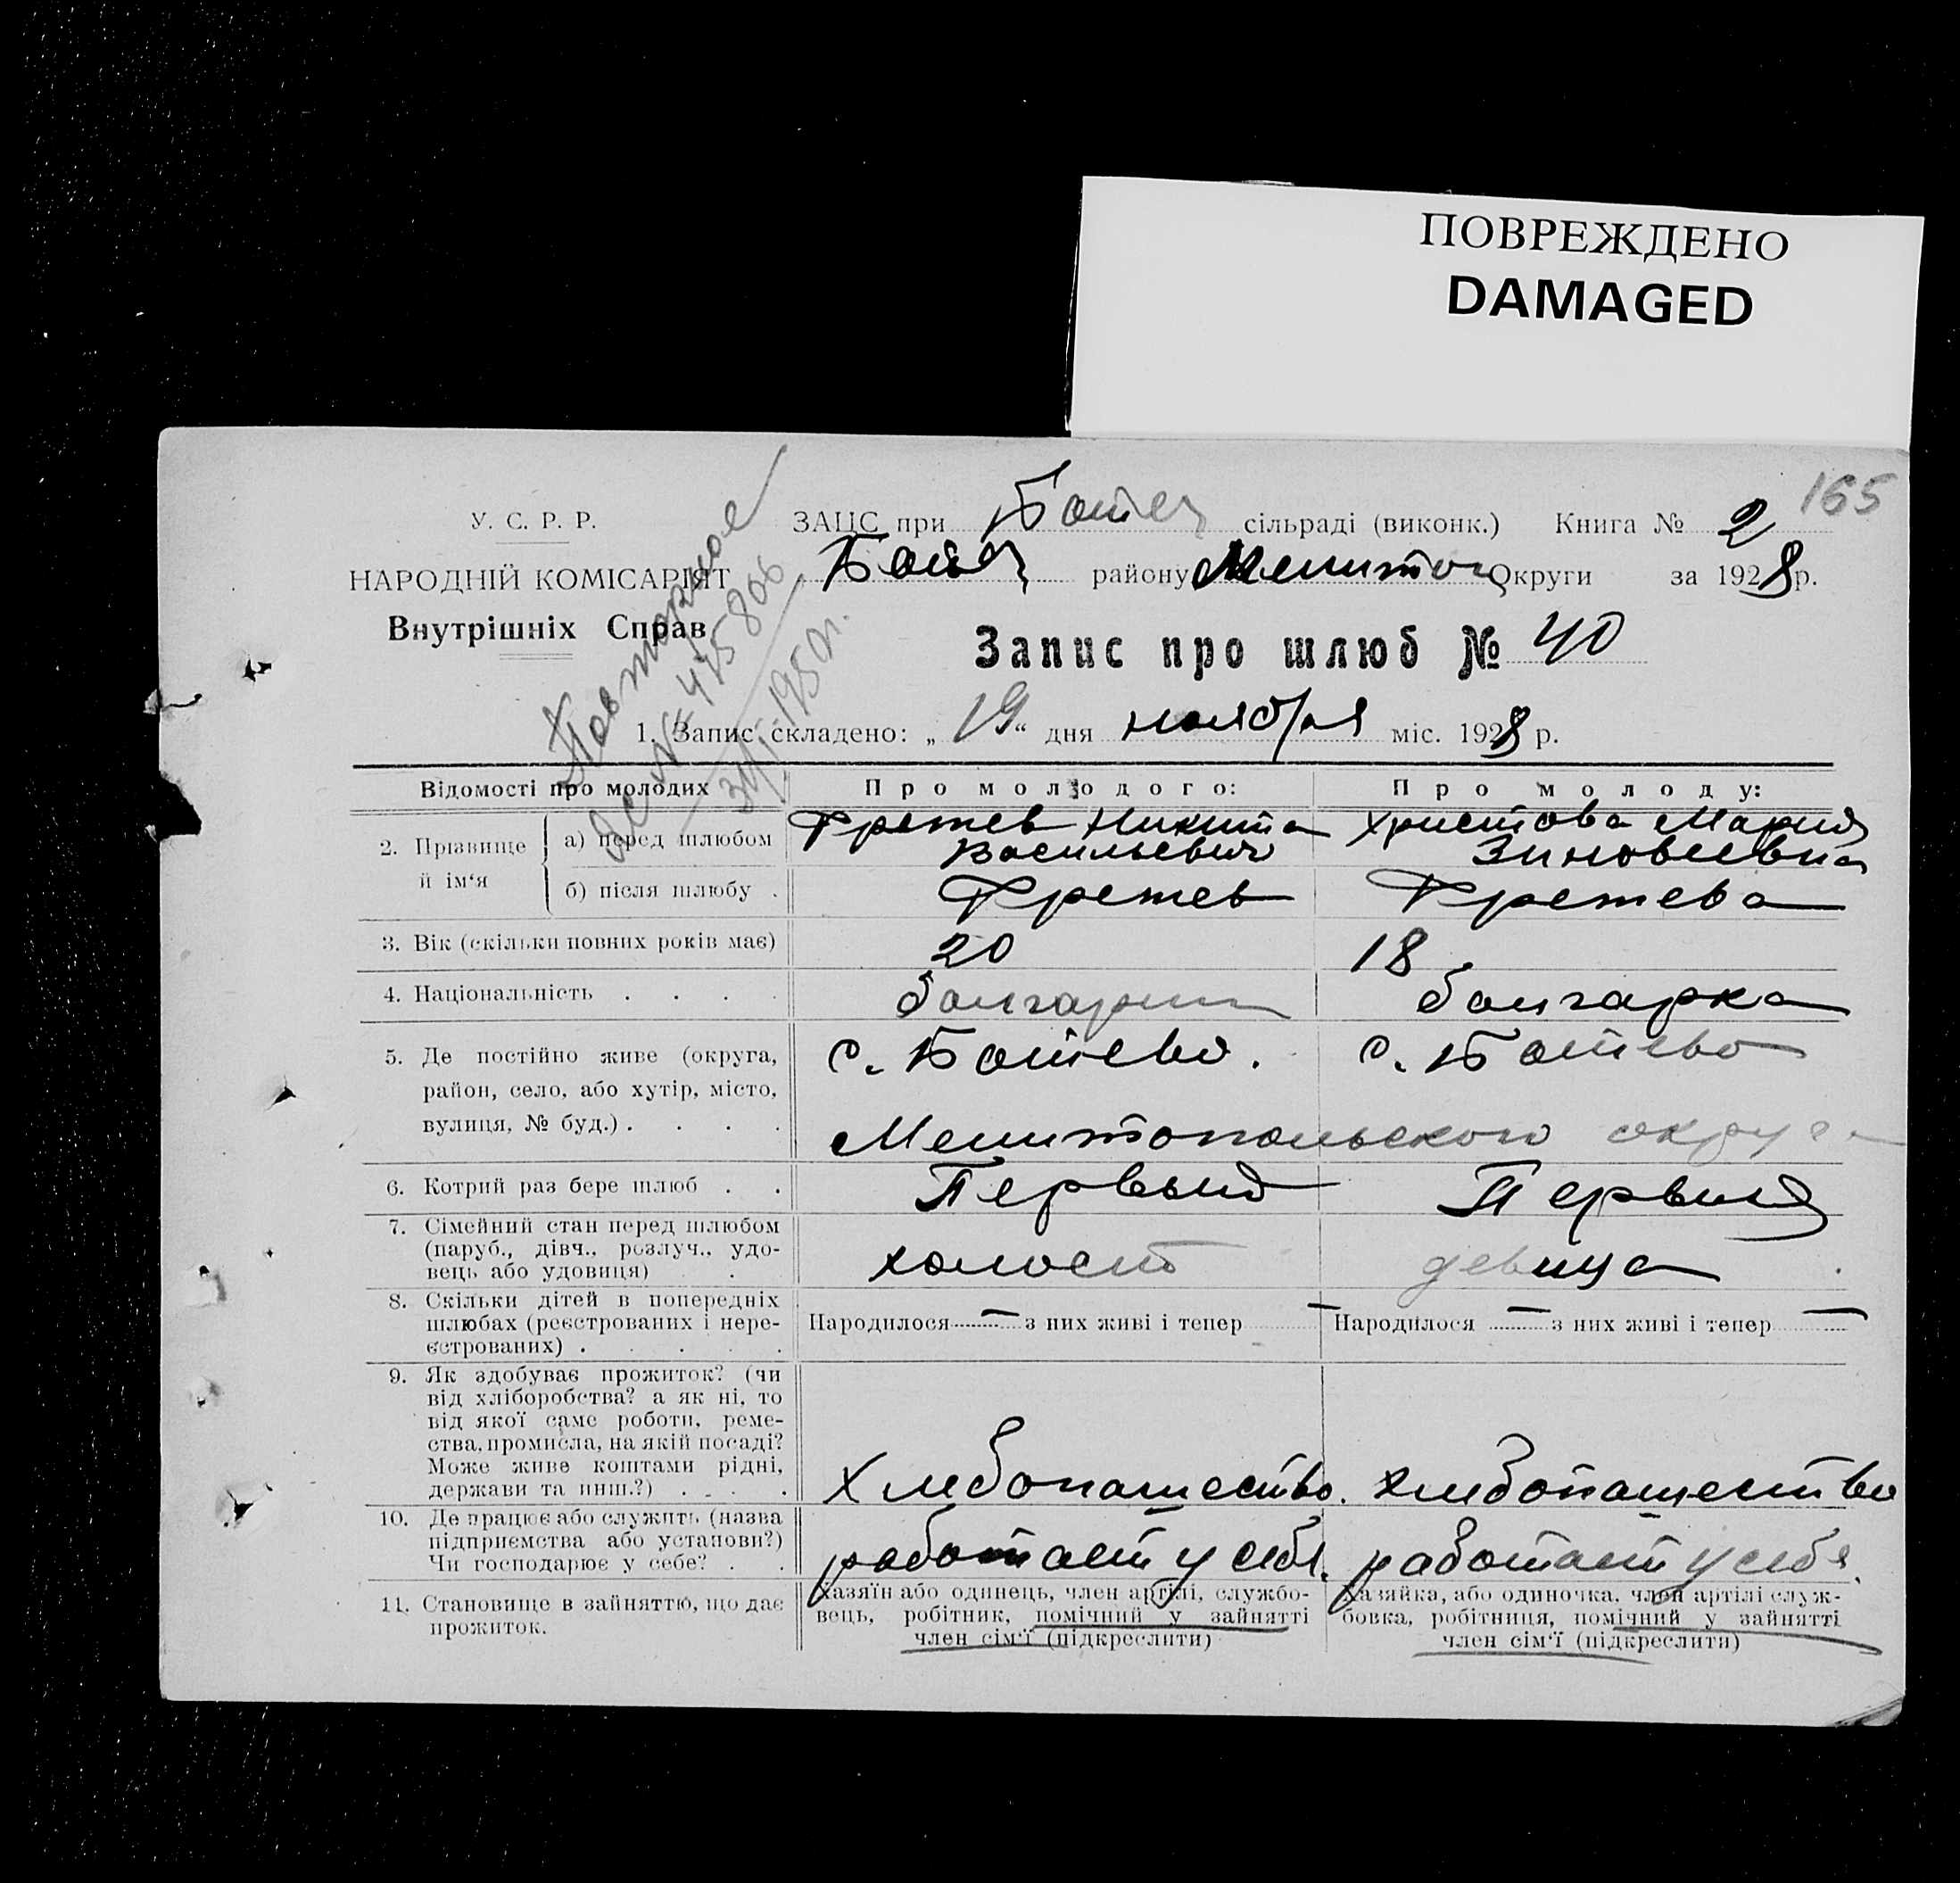 ПОВРЕЖДЕНО
DAMAGED
165
У. С. Р. Р.
ЗАЦС при Ботев сільраді (виконк.) Книга № 2
НАРОДНІЙ КОМІСАРІЯТ
Ботев району Мелитоп Округи за 1928 р.
Внутрішніх Справ
Запис про шлюб № 40
Повторное
№ 475806
1950г.
1. Запис складено: „19“ дня ноября міс. 1928 р.
Відомості про молодих
Про молодого:
Про молоду:
2. Прізвище й ім‘я
а) перед шлюбом
Никита Васильевич
Христова Мария Зиновеевна
б) після шлюбу .
3. Вік (скільки повних років має)
20
18
4. Національність . . . .
болгарин
болгарка
5. Де постійно живе (округа,
район, село, або хутір, місто,
вулиця, № буд.) . . . .
с. Ботево.
с. Ботево
Мелитопольского округа
6. Котрий раз бере шлюб . .
Первый
Первый
7. Сімейний стан перед шлюбом
(паруб., дівч., розлуч., удо-
вець або удовиця) .
холост
девица
8. Скільки дітей в попередніх
шлюбах (реєстрованих і нере-
єстрованих) . . . . .
Народилося — з них живі і тепер —
Народилося — з них живі і тепер —
9. Як здобуває прожиток? (чи
від хліборобства? а як ні, то
від якої саме роботи, реме-
ства, промисла, на якій посаді?
Може живе коштами рідні,
держави та инш.?) . . . .
Хлебопашество.
хлебопашество
10. Де працює або служить (назва
підприємства або установи?)
Чи господарює у себе? . .
работает у себя.
работает у себя.
11. Становище в зайняттю, що дає
прожиток.
Хазяїн або одинець, член артілі, службо-
вець, робітник, помічний у зайнятті
член сім‘ї (підкреслити)
Хазяйка, або одиночка, член артілі служ-
бовка, робітниця, помічний у зайнятті
член сім‘ї (підкреслити)